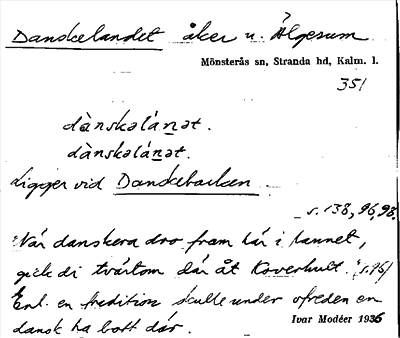 Danskelandet åker u. Älgesum
Mönsterås sn, Stranda hd, Kalm. l.
351
dànskəláṉət.
dànskəláṉət.
Ligger vid Danskebacken
s. 138, 96, 98.
"När danskera dro fram här i lannet,
gick di tvärtom där åt Koverhult." (s. 96)
Enl. en tradition skulle under ofreden en
dansk ha bott där.
Ivar Modéer 1936